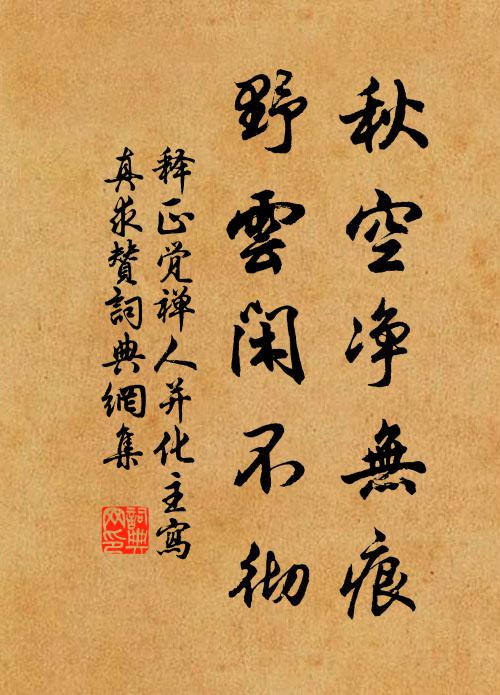 秋空净無痕
野雲閑不彻
释正觉禅人并化主寫
真求赞詞典網集
詞典網印